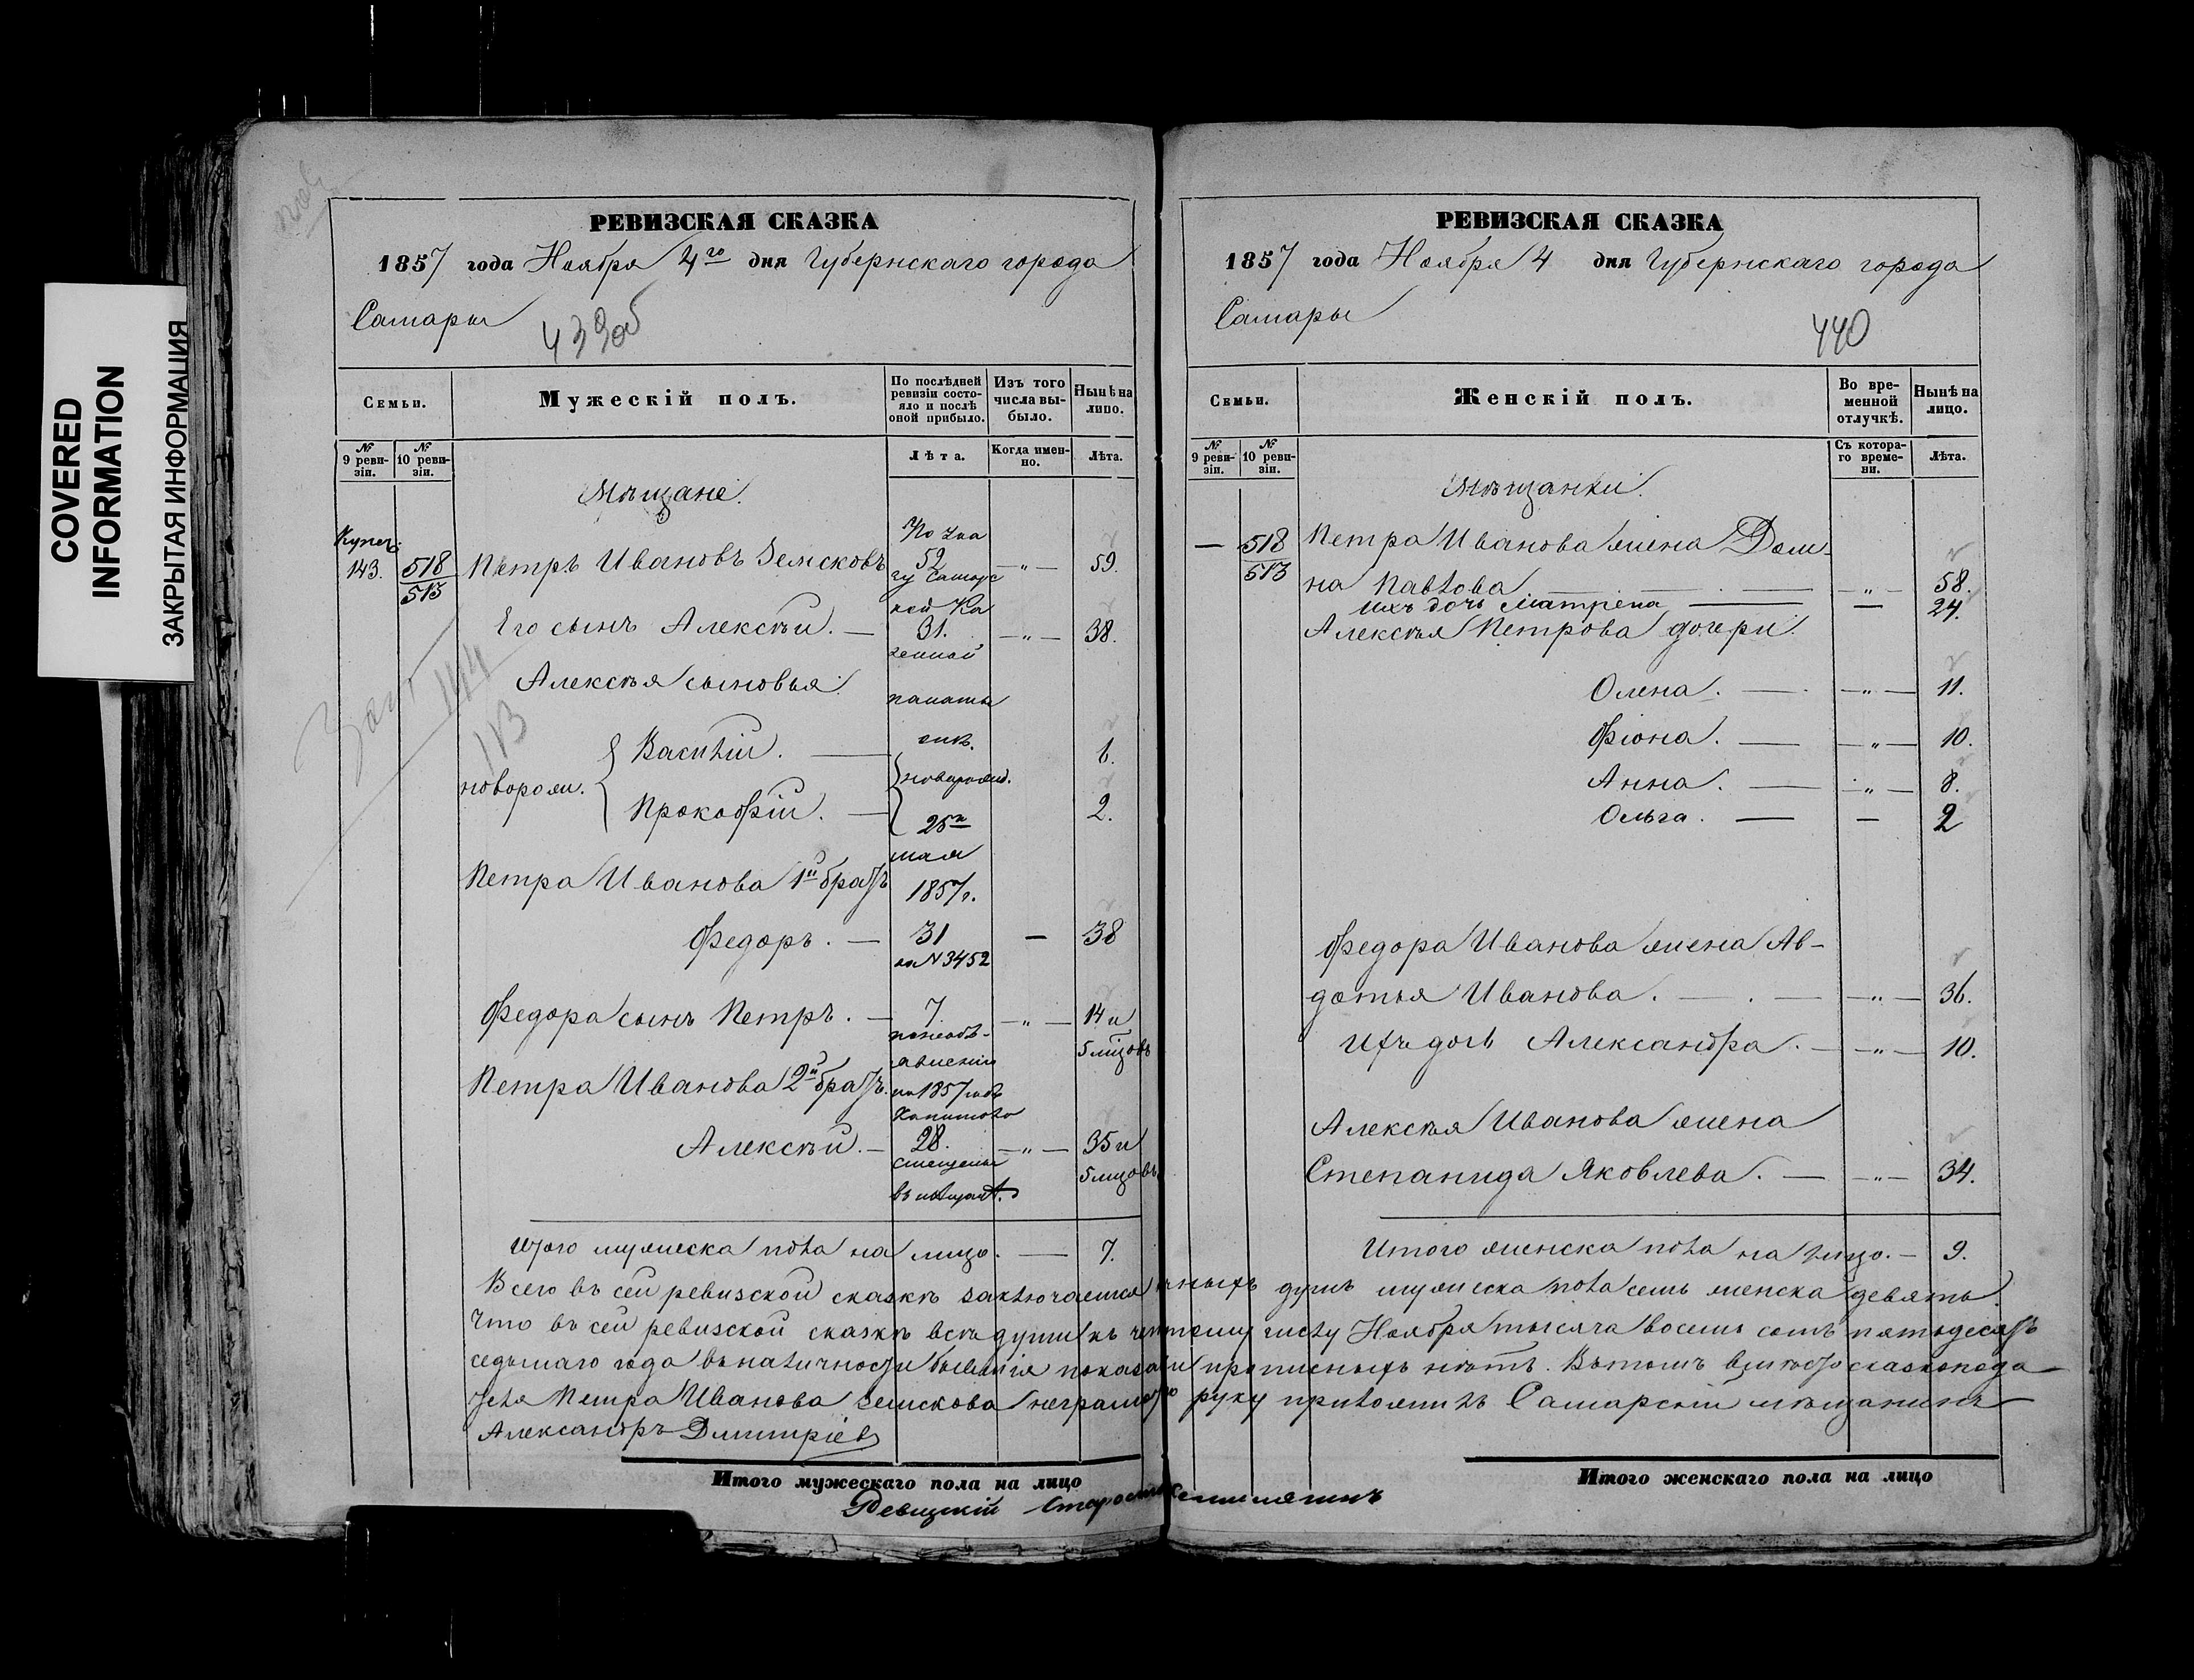 COVERED
INFORMATION
ЗАКРЫТАЯ ИНФОРМАЦИЯ
РЕВИЗСКАЯ СКАЗКА
1857 года Ноября 4го дня Губернскаго города
Самары
439об
Семьи.
Мужескій полъ.
По послѣдней ревизіи состо-
яло и послѣ
оной прибыло.
Изъ того
числа вы-
было.
Нынѣ на
лицо.
№
9 реви-
зіи.
№
10 реви-
зіи.
Лѣта.
Когда имен-
но.
Лѣта.
Мѣщане.
Купеч.
143.
518
513
Петръ Ивановъ Земсковъ
По ука
52
зу Самарс
59.
Его сынъ Алексѣй. —
кой Ка
31.
зенной
38.
Алексѣя сыновья:
палаты
новорож.
Василій. —
6.
новорожд.
Прокофій. —
25го
2.
мая
Петра Иванова 1й братъ
1857г.
Федоръ. —
31
38
за №3452
Федора сынъ Петръ. —
7.
14 и
5 мѣсцовъ
по необъ-
явленію
Петра Иванова 2й братъ.
на 1857 годъ
капитала
Алексѣй. —
28.
35 и
5 мѣсцовъ
Итого мужеска пола на лицо. — 7.
РЕВИЗСКАЯ СКАЗКА
1857 года Ноября 4 дня Губернскаго города
Самары
440
Семьи.
Женскій полъ.
Во вре-
менной
отлучкѣ.
Нынѣ на
лицо.
№
9 реви-
зіи.
№
10 реви-
зіи.
Съ котора-
го време-
ни.
Лѣта.
Мѣщанки.
— 518
513
Петра Иванова жена Дом-
на Павлова — 58.
ихъ дочь Матрена — 24.
Алексѣя Петрова дочери:
Олена. — 11.
Фіона. — 10.
Анна. — 8.
Ольга. — 2
Федора Иванова жена Ав-
дотья Иванова. — 36.
Ихъ дочь Александра. — 10.
Алексѣя Иванова жена
Степанида Яковлева. — 34.
Итого женска пола на лицо. — 9.
Всего въ сей ревизской сказкѣ заключается душъ мужеска пола семь женска девять.
Что въ сей ревизской сказкѣ всѣ души къ четвертому числу Ноября тысяча восемь сотъ пятьдесятъ
седьмаго года въ наличности бывшія показаны и прописныхъ нѣтъ. Въ томъ вмѣсто сказкопода-
теля Петра Иванова Земскова неграмотнаго руку приложилъ Самарскій мѣщанинъ
Александръ Дмитріевъ
Итого мужескаго пола на лицо
Итого женскаго пола на лицо
Староста